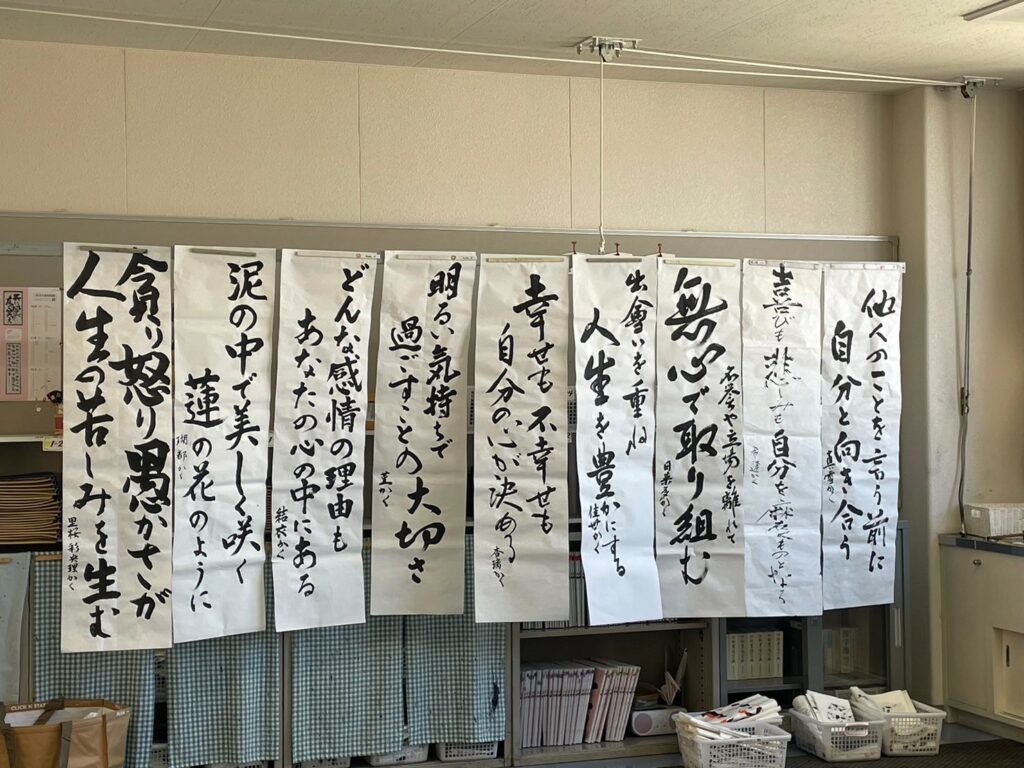 他人のことを言う前に
自分と向き合う
喜びも悲しみも
自分を
名誉や立場を離れて
無心で取り組む
出會いを重ね
人生を豊かにする
佳世かく
幸せも不幸せも
自分の心が決める
明るい気持ちで
過ごすことの大切さ
菫かく
どんな感情の理由も
あなたの心の中にある
結衣かく
泥の中で美しく咲く
蓮の花のように
瑚都かく
貪り怒り愚かさが
人生の苦しみを生む
里桜 彩央理かく
1-2